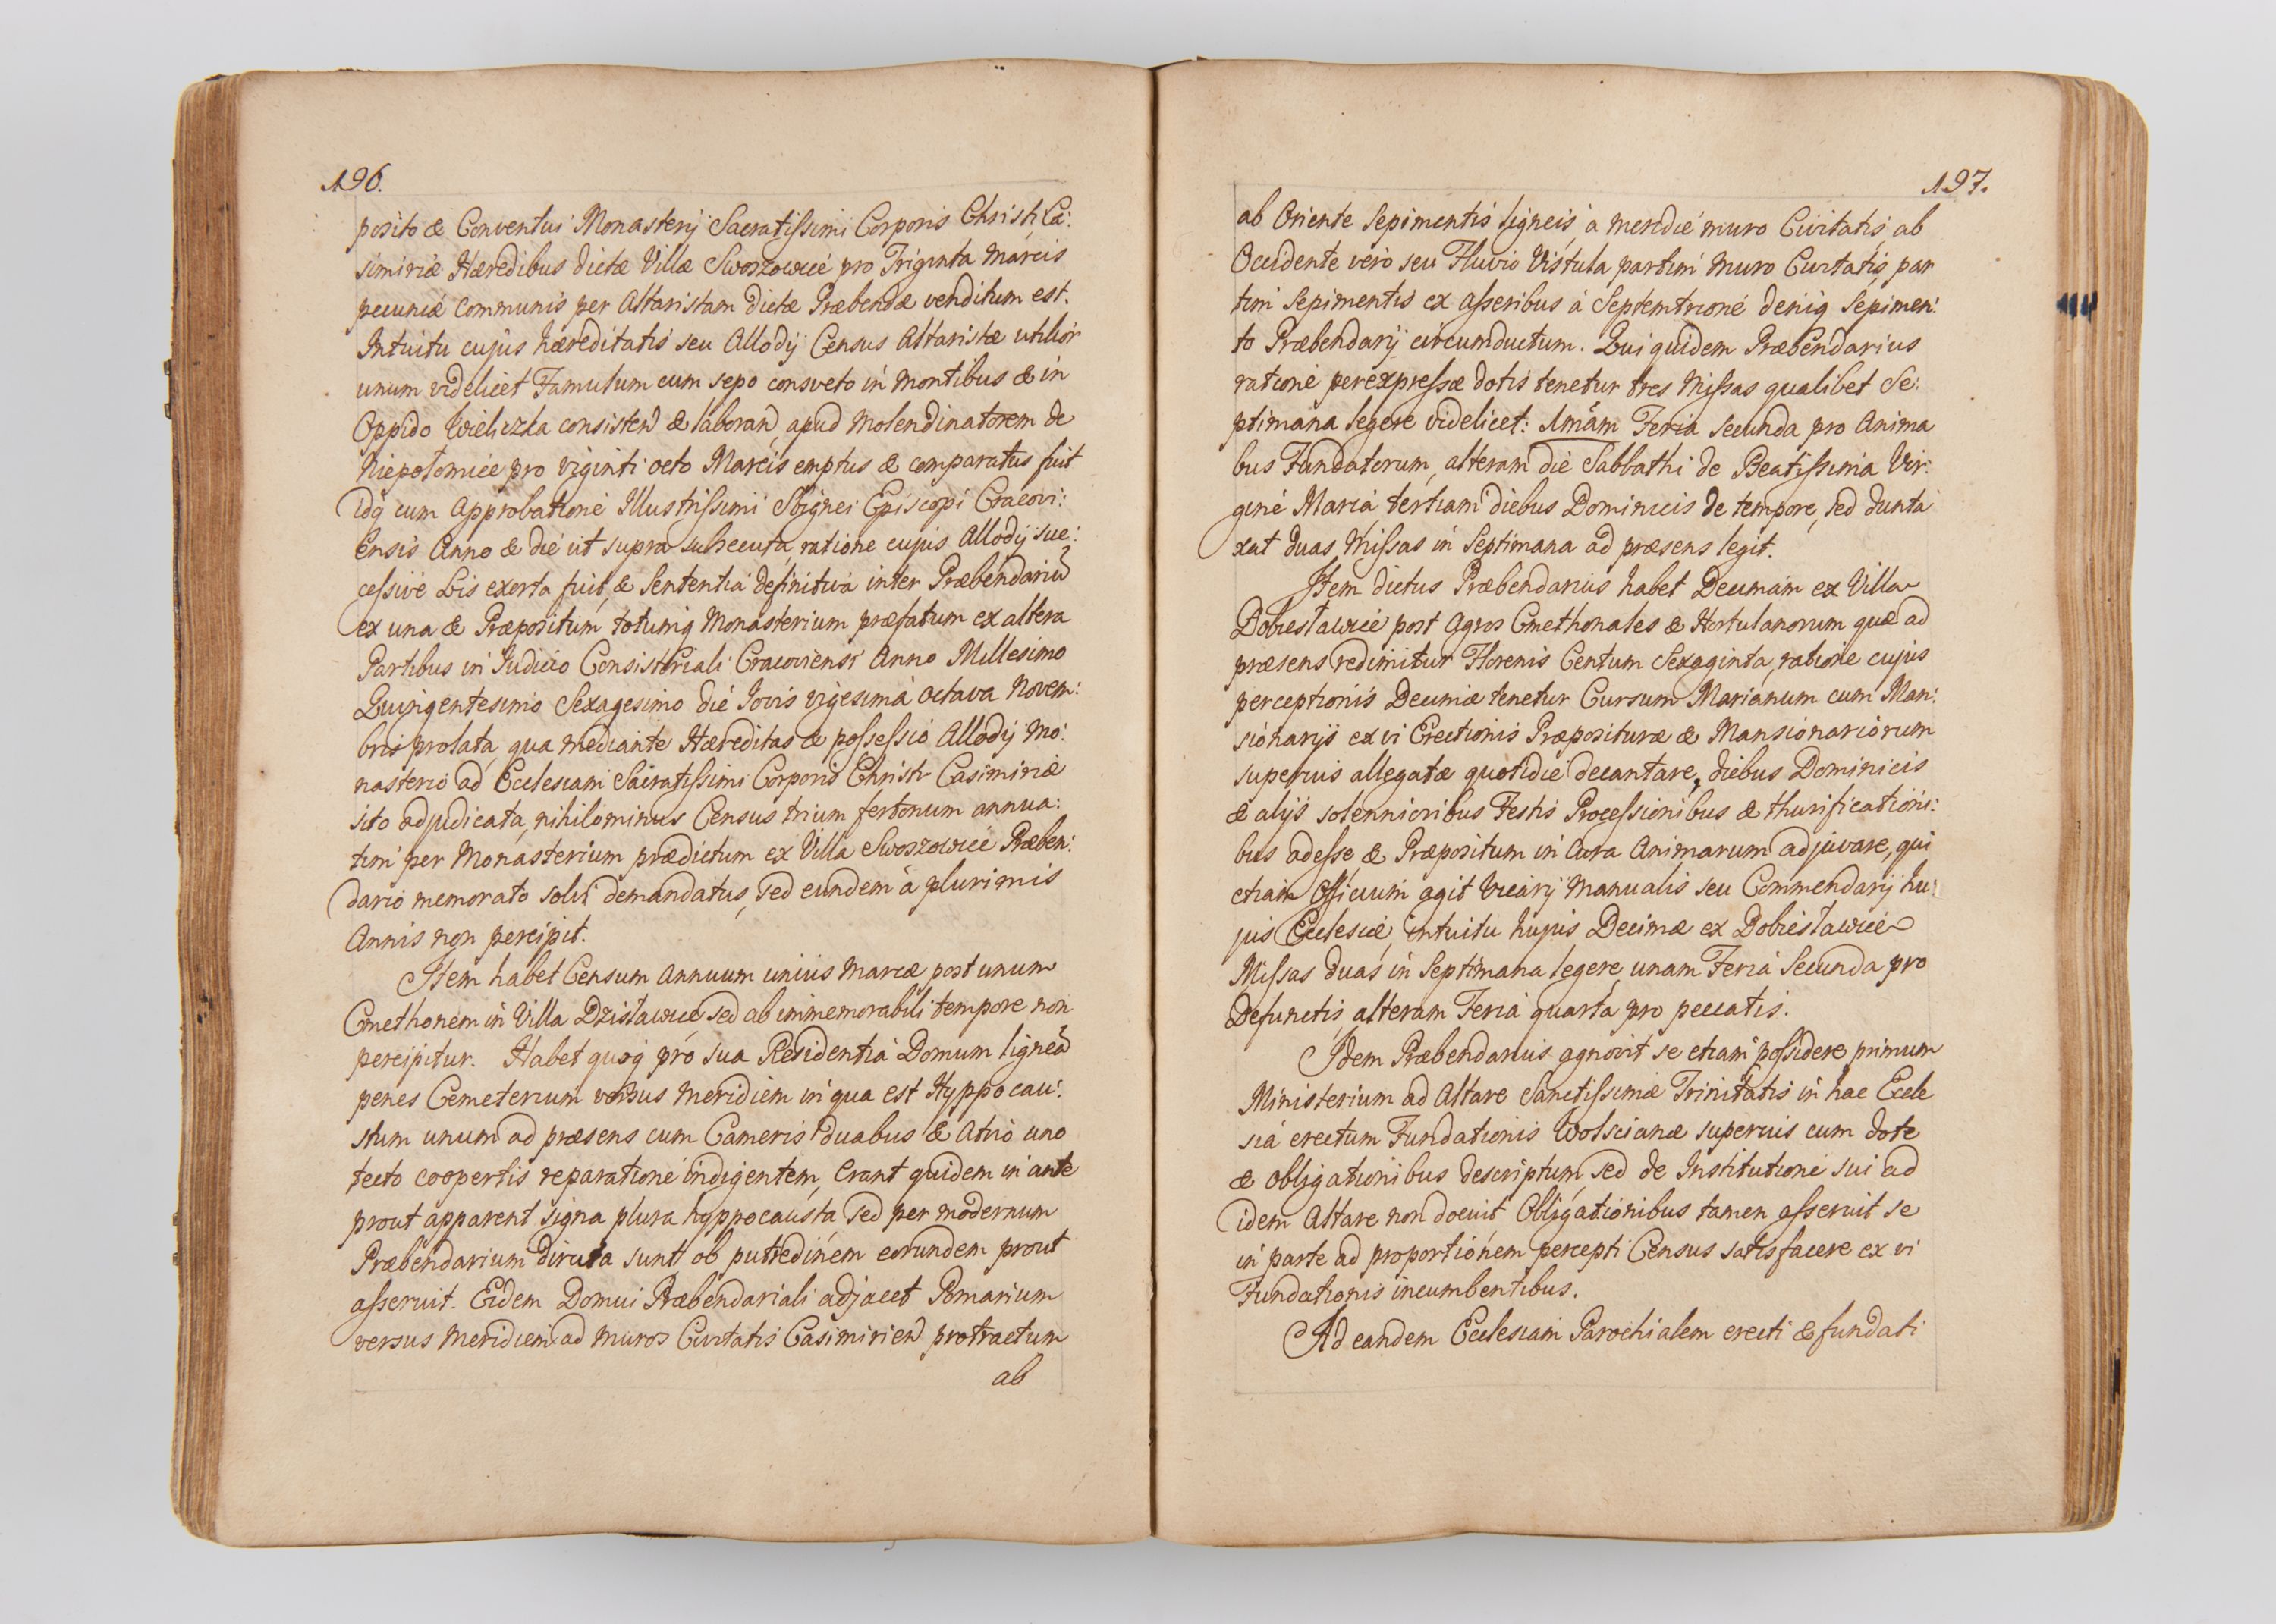 196.
posito & Conventui Monasterij Sacratissimi Corporis Christi Ca:
simiriæ Hæredibus dictæ Villæ Swoszowice pro Triginta Marcis
pecuniæ communis per Altaristam dictæ Præbendæ venditum est.
Intuitu cujus hæreditatis seu Allodij Census Altaristæ utilior
unum videlicet Famulum cum sepo consveto in Montibus & in
Oppido Wieliczka consisten & laboran, apud Molendinatorem de
Niepołomice pro viginti octo Marcis emptus & comparatus fuit
idq cum Approbatione Illustrissimi Sbignei Episcopi Cracovi:
ensis Anno & die ut supra subsecuta, ratione cujus Allodij suc:
cessive Lis exorta fuit, & Sententia definitiva inter Præbendariu
ex una & Præpositum totumq Monasterium præfatum ex altera
Partibus in Iudicio Consistoriali Cracoviensi Anno Millesimo
Quingentesimo Sexagesimo die Iovis vigesima octava Novem:
bris prolata, qua mediante Hæreditas & possessio Allodij Mo:
nasterio ad Ecclesiam Sacratissimi Corporis Christi Casimiriæ
sito adjudicata, nihilominus Census trium fertonum annua:
tim per Monasterium prædictum ex Villa Swoszowice Præben:
dario memorato solvi demandatus, sed eundem à plurimis
Annis non percipit.
Item habet Censum Annuum unius Marcæ post unum
Cmethonem in Villa Dzisławice sed ab immemorabili tempore non
percipitur. Habet quoq pro sua Residentia Domum ligneã
penes Cemeterium versus Meridiem in qua est Hyppocau:
stum unum ad præsens cum Cameris duabus & Atrio uno
tecto coopertis reparatione indigentem, Erant quidem in ante
prout apparent signa plura hyppocausta sed per modernum
Præbendarium diruta sunt ob putredinem eorundem prout
asseruit. Eidem Domui Præbendariali adjacet Pomarium
versus Meridiem ad Muros Civitatis Casimirien protractum
ab
197.
ab Oriente Sepimentis ligneis, à meridie muro Civitatis, ab
Occidente verò seu Fluvio Vistula partim Muro Civitatis, par
tim Sepimentis ex Asseribus à Septemtrione deniq Sepimen:
to Præbendarij circumductum. Qui quidem Præbendarius
ratione perexpressæ dotis tenetur tres Missas qualibet Se:
ptimana legere videlicet: 1mam Feria Secunda pro Anima
bus Fundatorum, alteram die Sabbathi de Beatissima Vir:
gine Maria, tertiam diebus Dominicis de tempore, sed dunta
xat duas Missas in Septimana ad præsens legit.
Item dictus Præbendarius habet Decimam ex Villa
Dobiesławice post Agros Cmethonales & Hortulanorum quæ ad
præsens redimitur Florenis Centum Sexaginta, ratione cujus
perceptionis Decimæ tenetur Cursum Marianum cum Man:
sionarijs ex vi Erectionis Præposituræ & Mansionariorum
superius allegatæ quotidie decantare, diebus Dominicis
& alijs solennioribus Festis Processionibus & thurificationi:
bus adesse & Præpositum in Cura Animarum adjuvare, qui
etiam Officium agit Vicarij Manualis seu Commendarij hu:
jus Ecclesiæ, intuitu hujus Decimæ ex Dobiesławice
Missas duas in Septimana legere, unam Feria Secunda pro
Defunctis, alteram Feria quarta pro peccatis.
Idem Præbendarius agnovit se etiam possidere primum
Ministerium ad Altare Sanctissimæ Trinitatis in hac Eccle
sia erectum Fundationis Wolscianæ superius cum dote
& obligationibus descriptum, sed de Institutione sui ad
idem Altare non docuit Obligationibus tamen asseruit se
in parte ad proportionem percepti Census satisfacere ex vi
Fundationis incumbentibus.
Ad eandem Ecclesiam Parochialem erecti & fundati